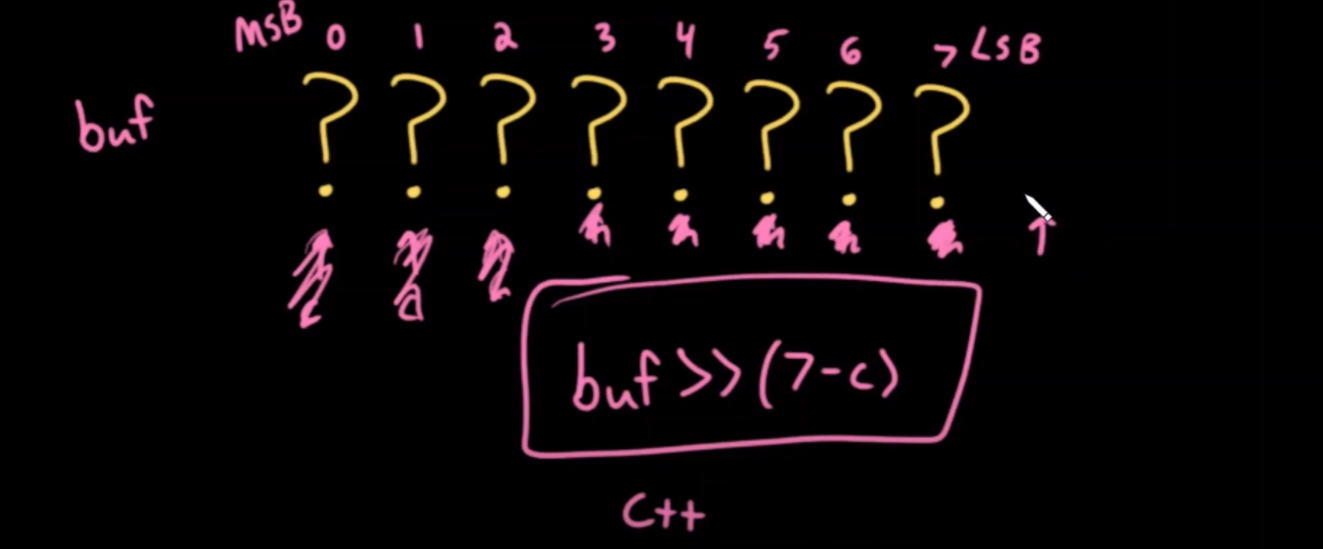 MSB 0 1 2 3 4 5 6 7 LSB
buf ? ? ? ? ? ? ? ?
buf >> (7-c)
C++